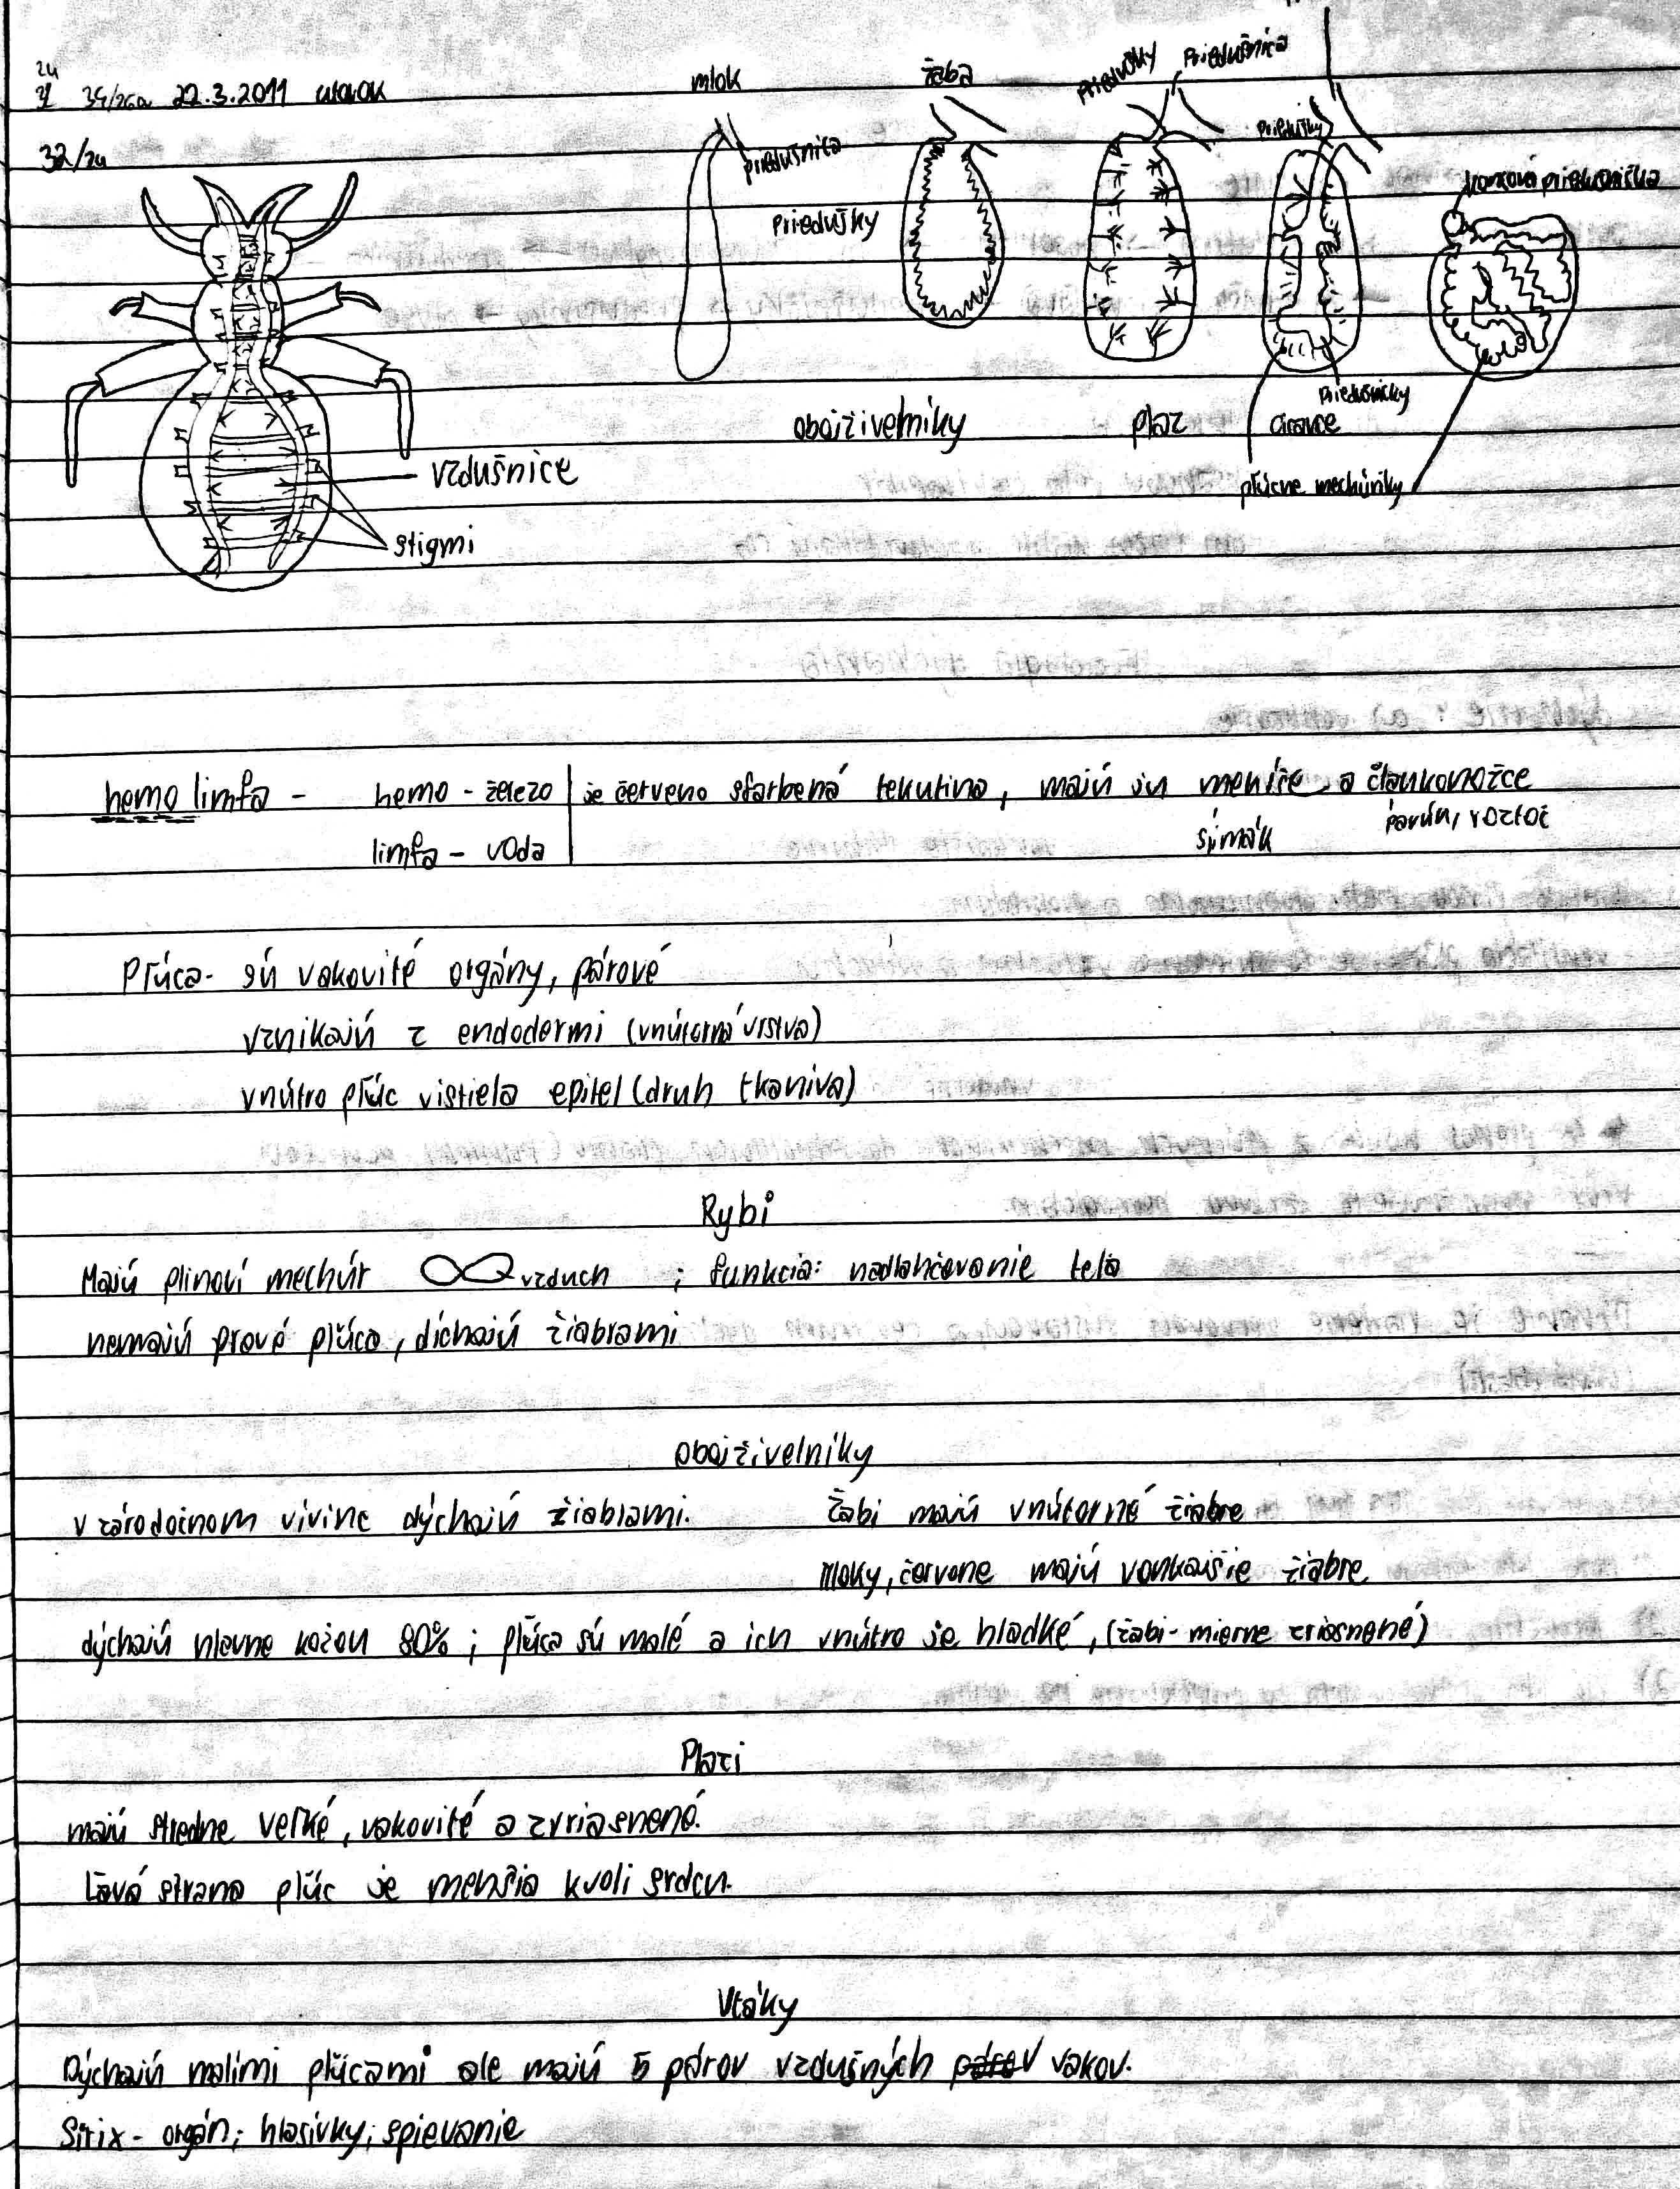 24
31 34/26a 22.3.2011 utorok
32/24
mlok
žaba
priedušky
priedušnica
priedušnica
priedušky
priedušky
priedušničky
obojživelníky
plaz
cicavce
pľúcne mechúriky
vzdušnice
stigmi
hemolimfa - hemo - železo je červeno sfarbená tekutina, majú ju a článkonožce
limfa - voda pavúk, roztoč
Pľúca - sú vakovité orgány, párové
vznikajú z endodermi (vnútorná vrstva)
vnútro pľúc vistiela epitel (druh tkaniva)
Rybi
Majú plinoví mechúr vzduch ; funkcia: nadlahčovanie tela
nemajú pravé pľúca, díchajú žiabrami
obojživelníky
v zárodočnom vívine dýchajú žiabrami. Žabi majú vnútorné žiabre
Mloky, červone majú vonkajšie žiabre
dýchajú hlavne kožou 80% ; pľúca sú malé a ich vnútro je hladké, (žabi - mierne zriasnené)
Plazi
majú stredne veľké, vakovité a zvriasnené.
Ľavá strana pľúc je menšia kvoli srdcu.
Vtáky
Dýchajú malími pľúcami ale majú 5 párov vzdušných párov vakov.
Sirix - orgán; hlasivky; spievanie